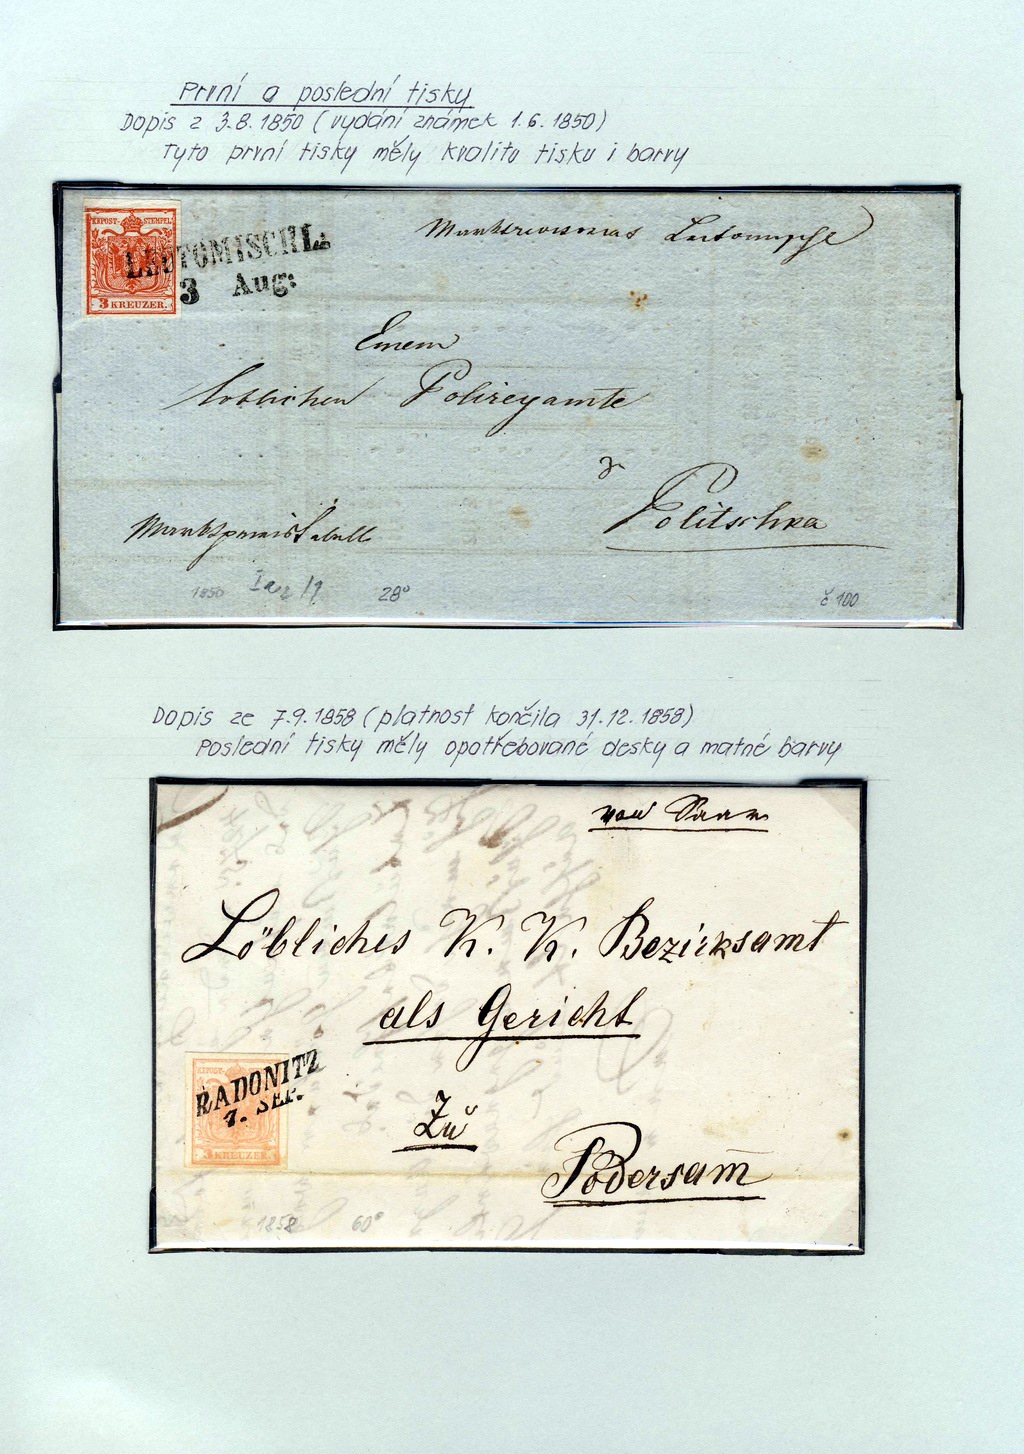 První a poslední tisky
Dopis z 3.8.1850 (vydání známek 1.6.1850)
Tyto první tisky měly kvalitu tisku i barvy
KKPOST-STEMPEL
3 KREUZER.
LEUTOMISCHL:
3 Aug:
Einem
löblichen Polizeyamte
Politschka
1850
28°
č 100
Dopis ze 7.9.1858 (platnost končila 31.12.1858)
Poslední tisky měly opotřebované desky a matné barvy
von Saar
Löbliches K. K. Bezirksamt
als Gericht
KKPOST-STEMPEL
3 KREUZER.
RADONITZ
7. SEP.
Zu
Podersam
1858
60°